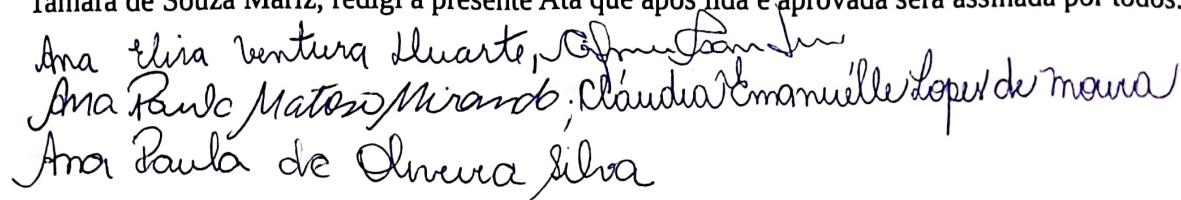 Tamara de Souza Mariz, redigi a presente Ata que após lida e aprovada será assinada por todos.
Ana Elisa Ventura Duarte,
Ana Paula Matoso Miranda; Cláudia Emanuélle Lopes de Moura
Ana Paula de Oliveira Silva